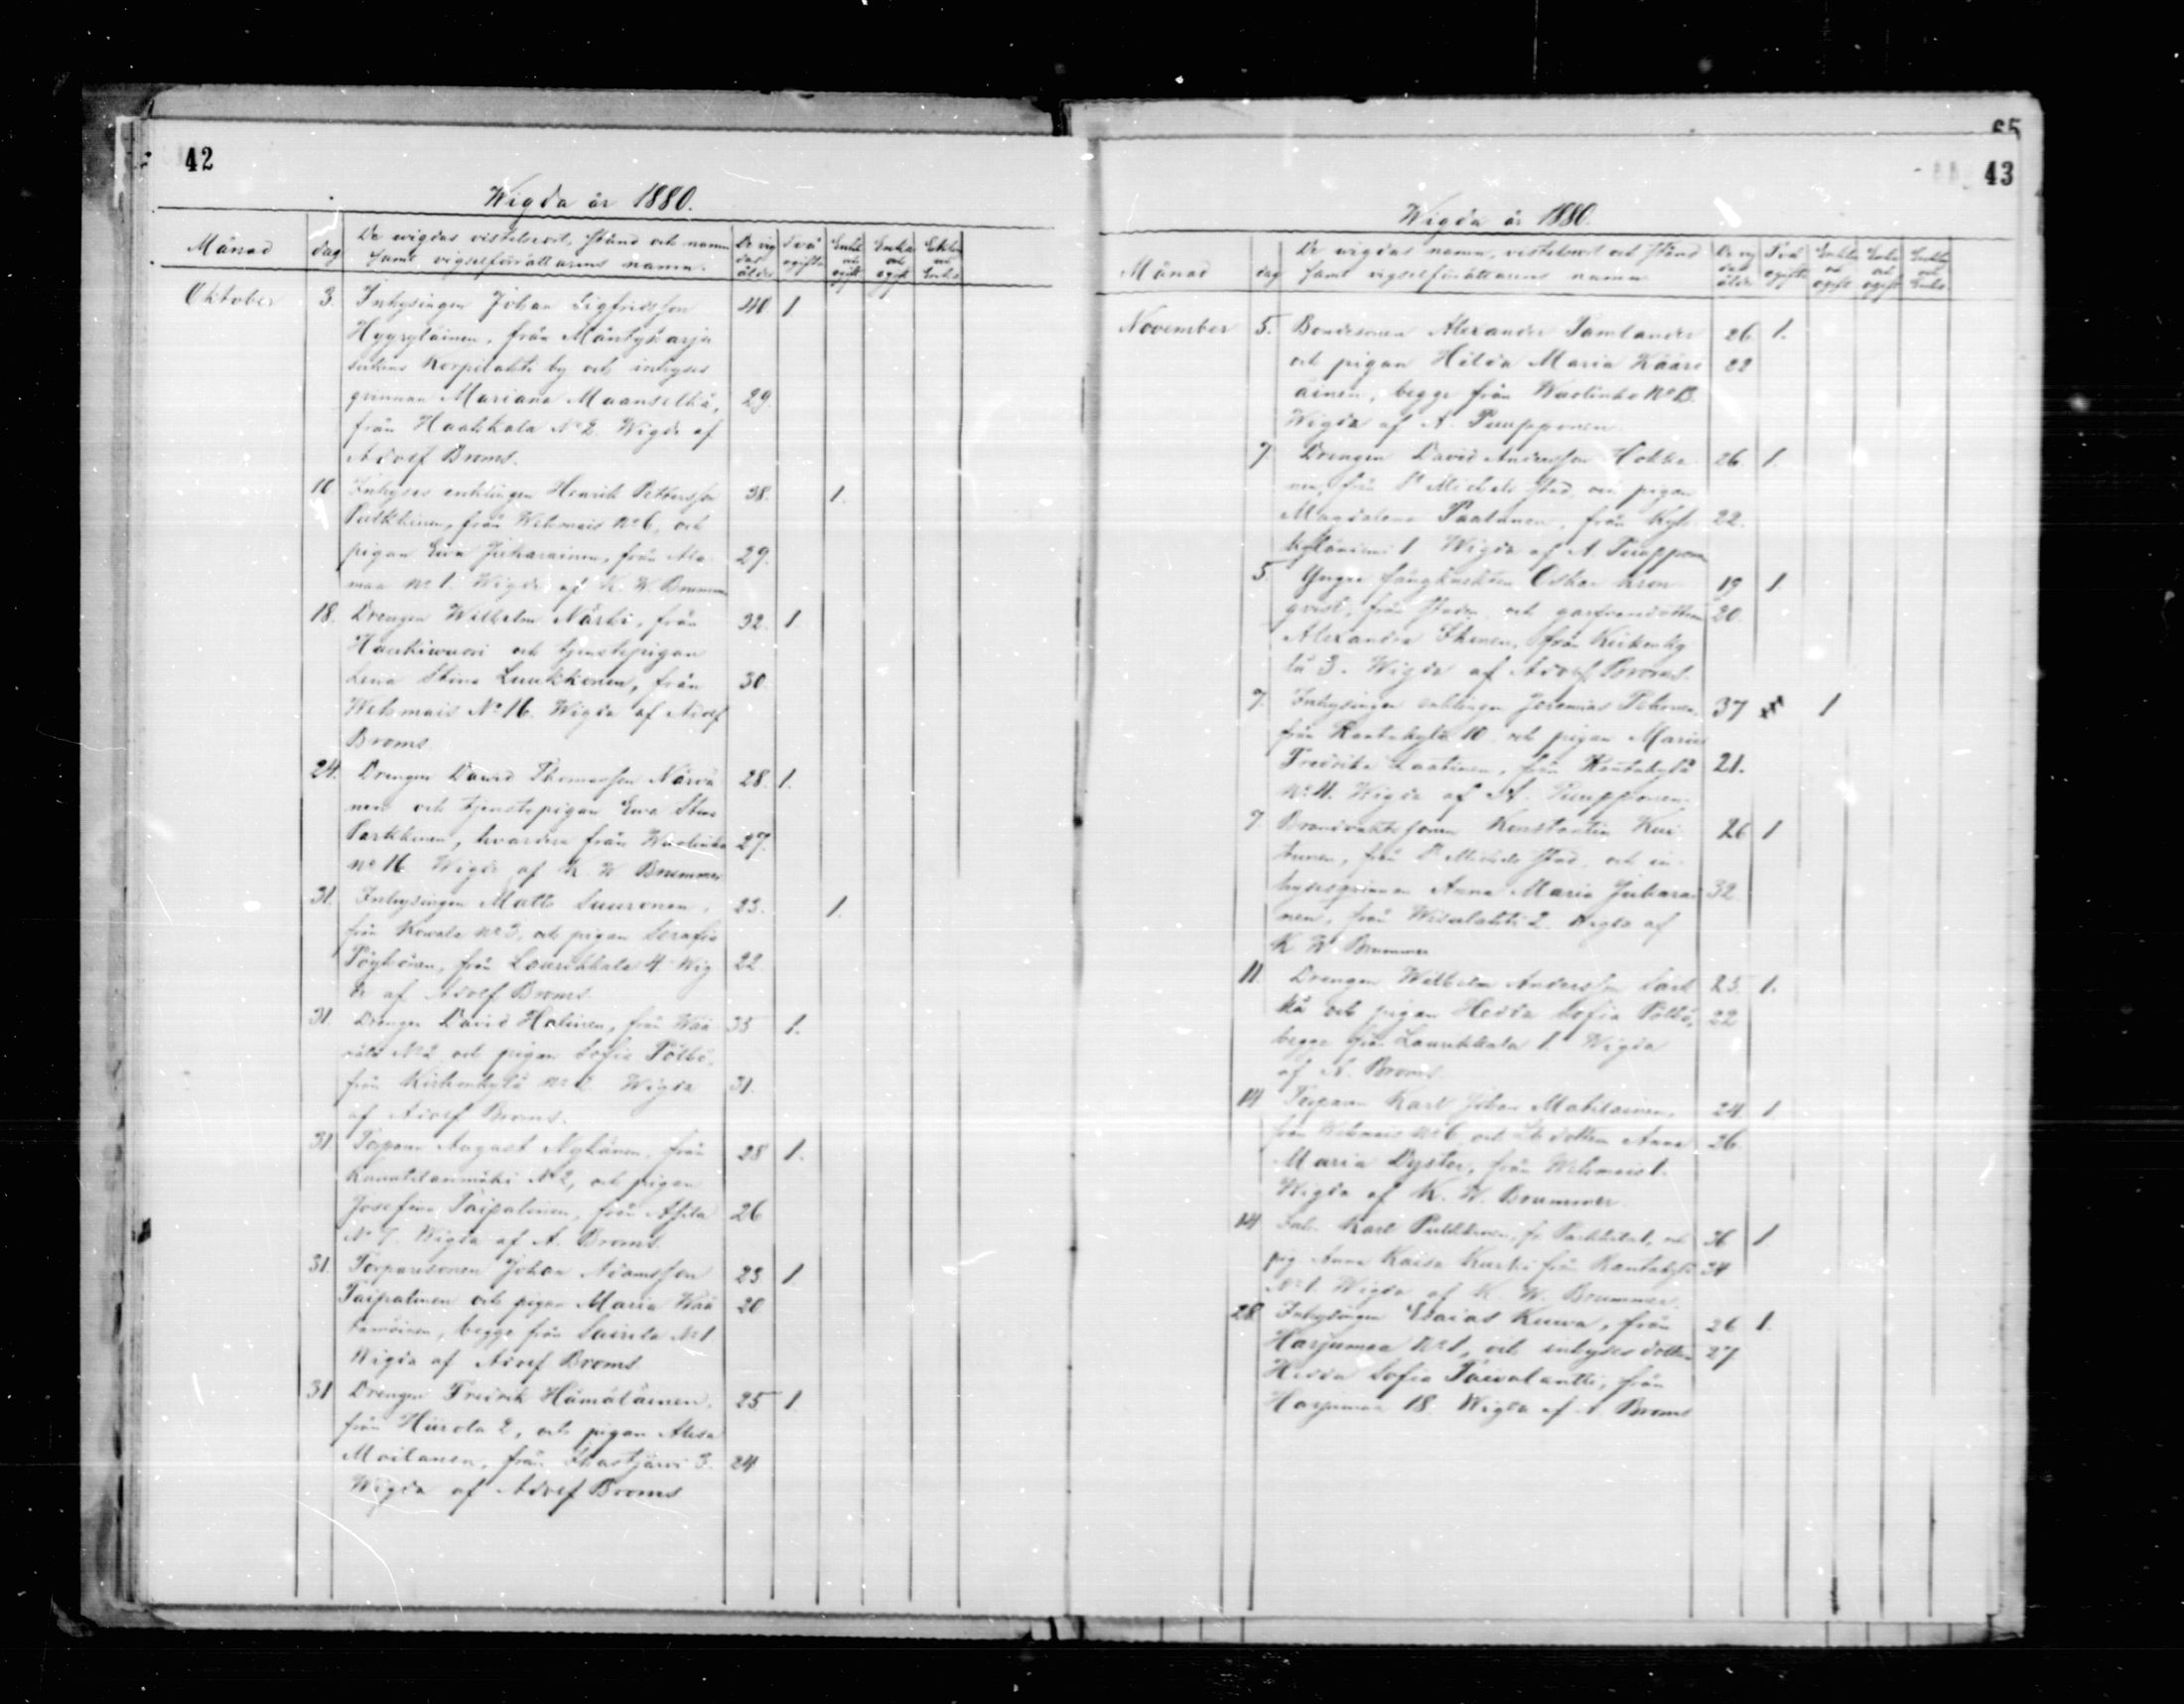 42
Wigda år 1880.
Månad dag De wigdas vistelseort, stånd och namn samt vigselförrättarens namn. De vigdas ålder Två ogifte Enkl. och ogift Enka och ogift Enkling och Enka
Oktober 3. Inhysingen Johan Sigfridsson 40 1
från Mäntyharju
sockens Korpilahti by och inhyses
grinnan Mariana Maanselkä, 29.
från Haukkala No 2. Wigde af
Adolf Broms.
Inhyses enklingen Henrik Pettersson 38. 1.
Pulkkinen, från Wehmais No 6, och
pigan Eva Juharainen, från Ala 29.
maa No 1. Wigde af K. W. Brummer
18. Drengen Wilhelm Närhi, från 32. 1.
Haukivuori och tjenstepigan
Lena Stina Luukkonen, från 30.
Wehmais No 16. Wigda af Adolf
Broms
24. Drengen David Thomasson Närvä 28. 1.
nen och tjenstepigan Eva Stina
Parkkinen, hvardera från Waolinko 27.
No 16 Wigde af K. W. Brummer
31. Inhysingen Matts Suuronen, 23. 1.
från Kovala No 3, och pigan Serafia
Pöyhönen, från Laurikkala 4 Wig 22.
de af Adolf Broms.
31. Drengen David Halinen, från Wää 33 1.
rälä No 2 och pigan Sofia Pöllä,
från Kirkonkylä Wigda 31.
af Adolf Broms.
31 Torparen August Nykänen, från 28 1.
No 2, och pigan
Josefina Taipalinen, från Asila 26
No 7. Wigda af A. Broms.
31. Torparesonen Johan Adamsson 23. 1
Taipalinen och pigan Maria Wää 20
begge från Sairila No 1
Wigda af Adolf Broms
31 Drengen Fredrik Hämäläinen, 25. 1
från Hiirola 2, och pigan Alexa
Moilanen, från Ihastjärvi 3. 24
Wigda af Adolf Broms
65
43
Wigda år 1880.
Månad dag De wigdas namn, vistelseort och stånd samt vigselförrättarens namn De vigdas ålder Två ogifte Enkling och ogift Enka och ogift Enkling och Enka
November 5. Bondesonen Alexander Pamlander 26. 1.
och pigan Hilda Maria Kääri 22
äinen, begge från Waolinko No 13.
Wigda af A. Pumpponen.
7. Drengen David Andersson Hokka 26. 1.
nen, från St Michels stad, och pigan
Magdalena Paatanen, från Kyh 22.
kylänieimi 1 Wigda af A. Pumpponen
5. Yngre fångknekten Oskar Kron 19 1.
qvist, från staden och garfvaredottern 20.
Alexandra Ihanen, från Kirkonky
lä 3. Wigda af Adolf Broms.
7. Inhysingen enklingen Jeremias Pehonen, 37 1
från Rantakylä 10 och pigan Maria
Fredrika Laatinen, från Rantakylä 21.
No 4. Wigda af A. Pumpponen.
7 Brandvaktssonen Konstantin Kui 26 1
tunen, från St Michels stad och in-
hysesgrinnan Anna Maria Juharai 32
nen, från Wisulahti 2. Wigda af
K. W. Brummer
11. Drengen Wilhelm Andersson Sark 25. 1.
kä och pigan Hedda Sofia Pöllä, 22
begge från Laurikkala 1. Wigda
af A. Broms.
14 Torparen Karl Johan Makkonen, 24 1
från Wehmais No 6, och Lb dottern Anna 26.
Maria Dyster, från Wehmais 1.
Wigda af K. W. Brummer.
14 Inh. Karl Pulkkinen, fr. och 36 1
pig Anna Kaisa Kurki från Rantakylä 34
No 1. Wigda af K. W. Brummer.
28. Inhysingen Esaias Kuwa, från 26 1.
Harjumaa No 1, och inhyses dottern 27
Hedda Sofia Taivalantti, från
Harjumaa 18. Wigda af A Broms